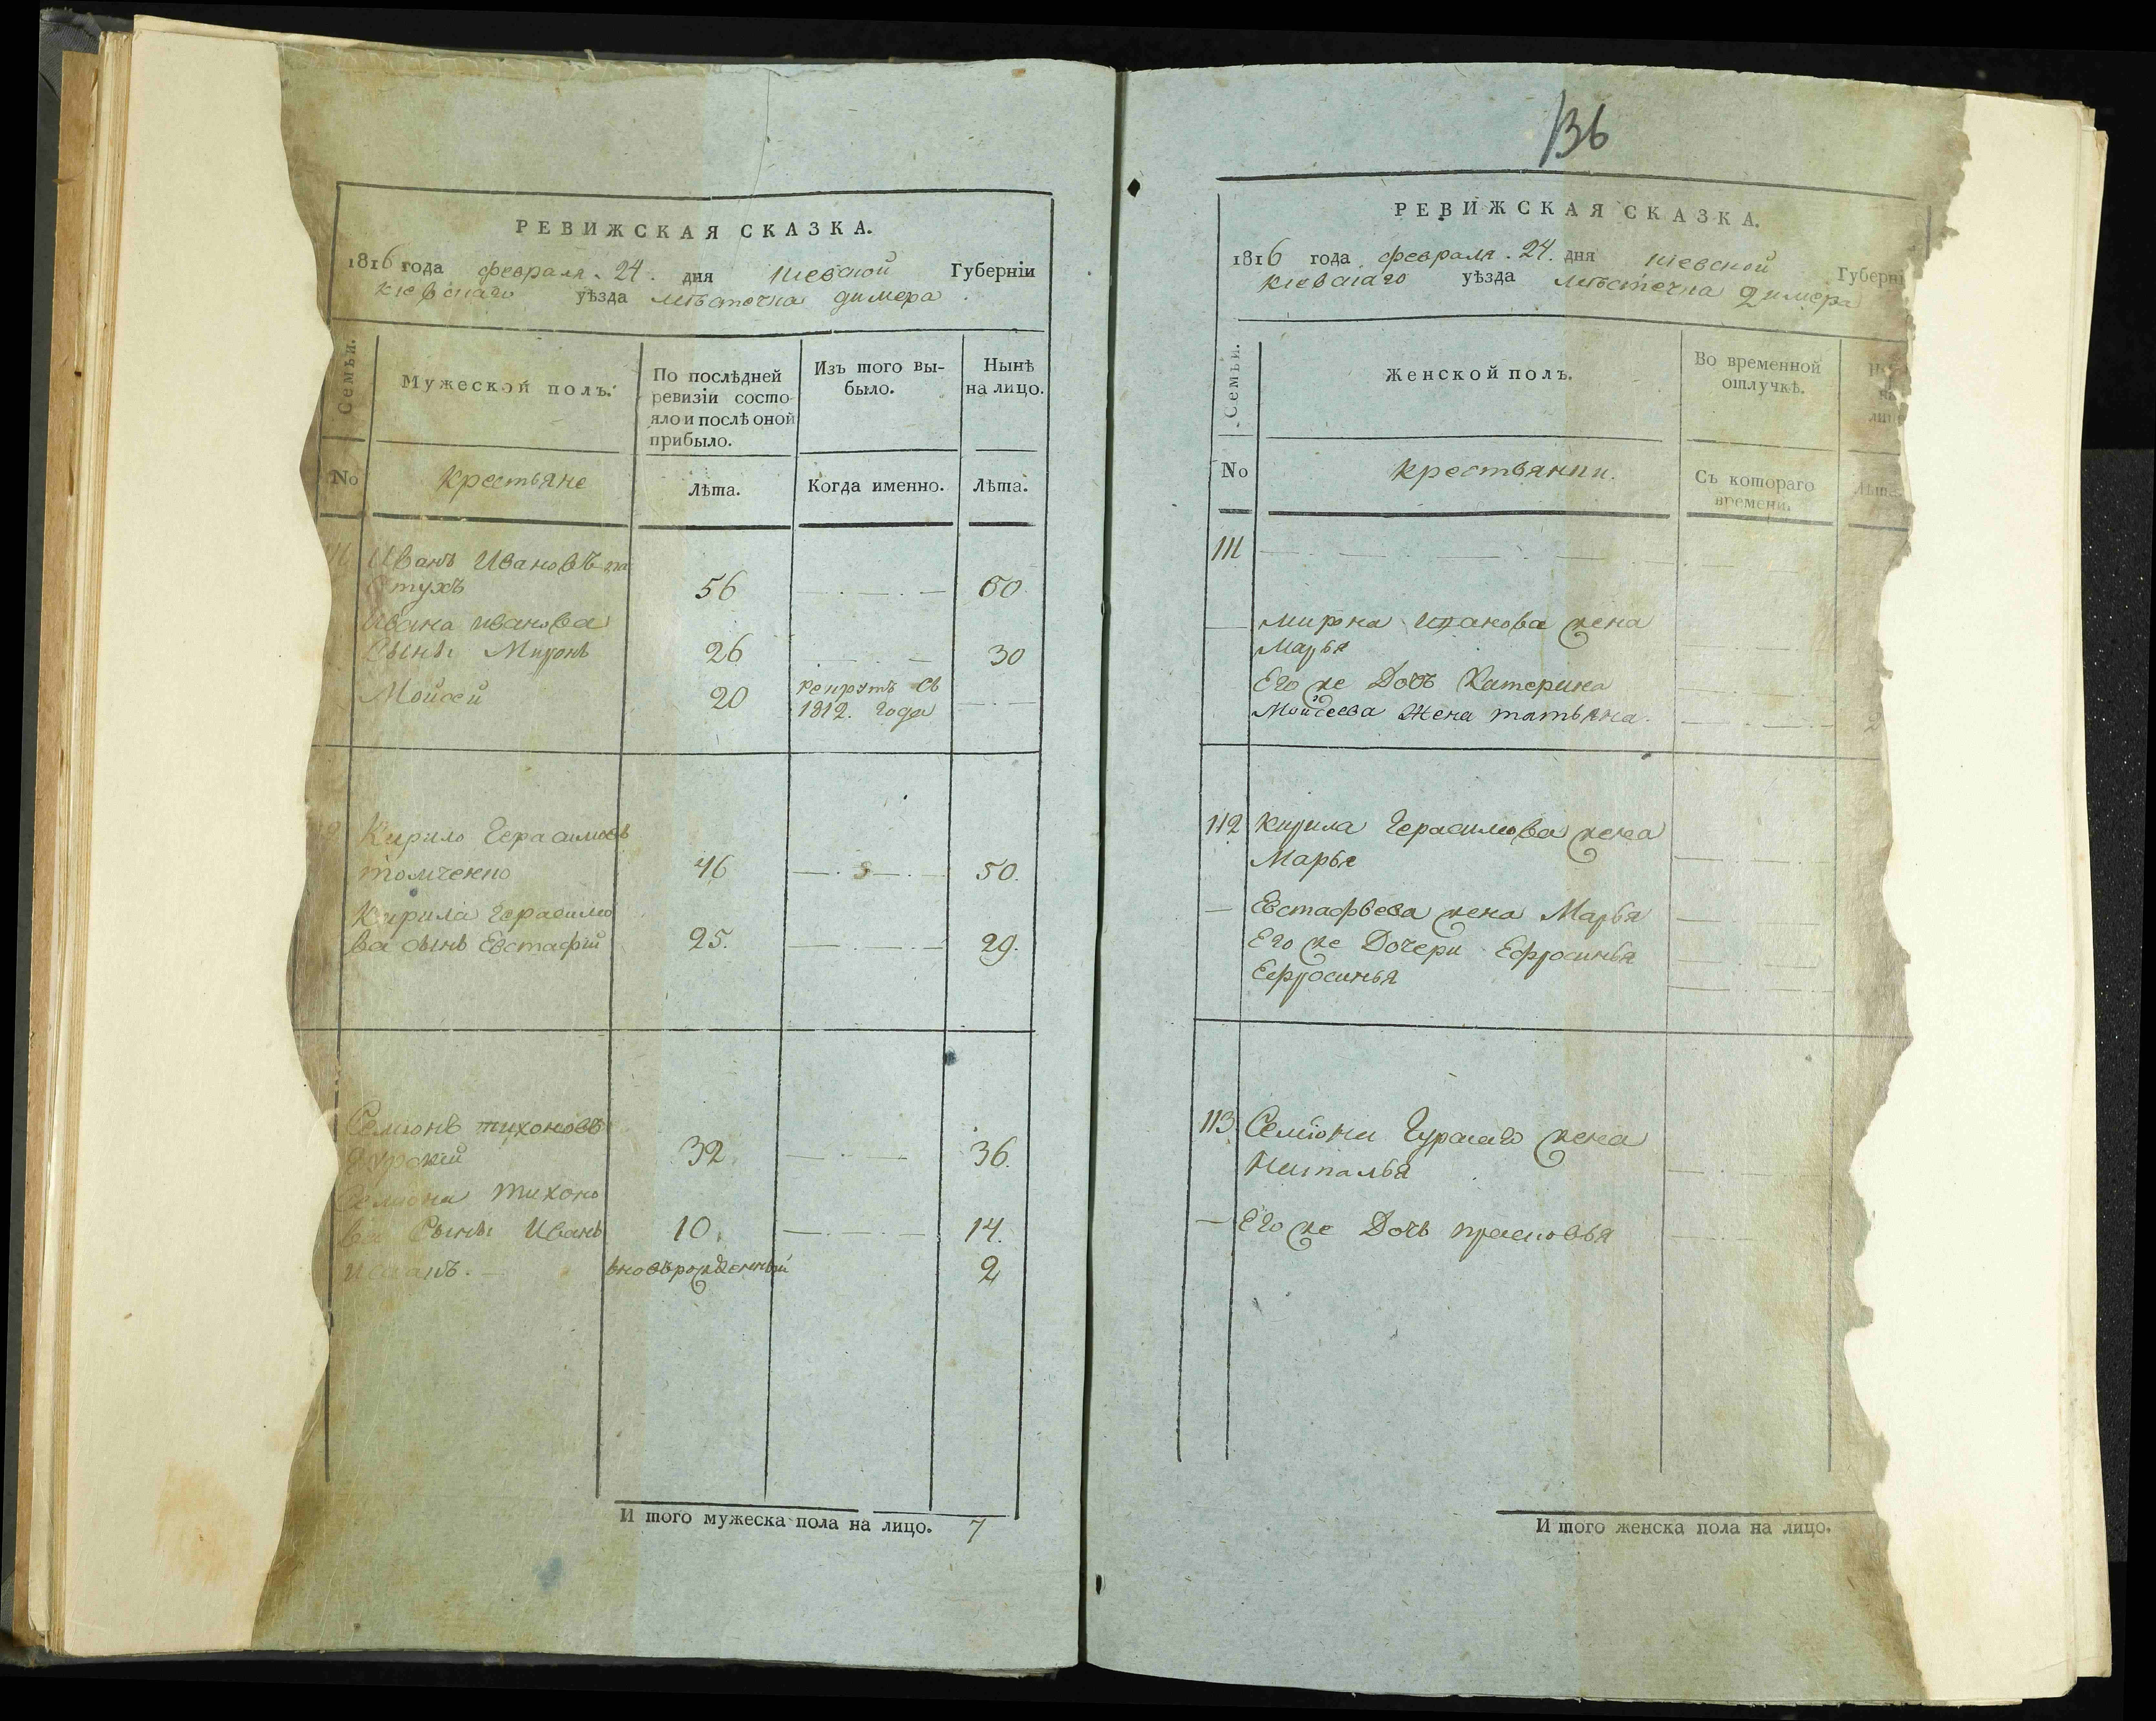 РЕВИЖСКАЯ СКАЗКА.
1816 года февраля. 24. дня Кіевской Губерніи
Кіевскаго уѣзда мѣстечка димера
Семьи.
Мужеской полъ.
По послѣдней
ревизіи состо-
яло и послѣ оной
прибыло.
Изъ того вы-
было.
Нынѣ
на лицо.
No
крестьяне
Лѣта.
Когда именно.
Лѣта.
Иванъ Ивановъ па
стухъ 56 60.
Ивана иванова
Сынъ Миронъ 26 30
Мойсей 20 рекрутъ съ
1812. года
Кирило Герасимовъ
томченко 46 50.
Кирила герасимо
ва сынъ Евстафій 25. 29.
Семіонъ тихоновъ
гурскій 32 36.
Семіона тихоно
ва Сынъ Иванъ 10. 14.
вновърожденный 2
И того мужеска пола на лицо. 7
136
РЕВИЖСКАЯ СКАЗКА.
1816 года февраля. 24. дня Кіевской Губерні
Кіевскаго уѣзда мѣстечка Димера
Семьи.
Женской полъ.
Во временной
отлучкѣ.
лиц
No
крестьянки.
Съ котораго
времени.
Лѣта
111
Мирона иванова жена
Марья
Его же Дочь Катерина
Мойсеева Жена татьяна.
112 Кирила Герасимова жена
Марья
Евстафьева жена Марья
Его же Дочери Ефросинья
Ефросинья
113 Семіона Гурскаго жена
Наталья
Его же Дочь прасковья
И того женска пола на лицо.